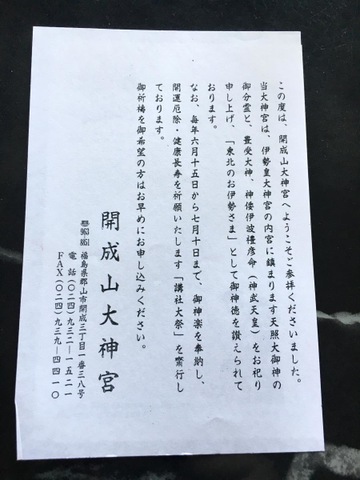 この度は、開成山大神宮へようこそご参拝くださいました。
当大神宮は、伊勢皇大神宮の内宮に鎮まります天照大御神の
御分霊と、豊受大神、神倭伊波禮彦命（神武天皇）をお祀り
申し上げ、「東北のお伊勢さま」として御神徳を讃えられて
おります。
なお、毎年六月十五日から七月十日まで、御神楽を奉納し、
開運厄除・健康長寿を祈願いたします「講社大祭」を斎行し
ております。
御祈祷を御希望の方はお早めにお申し込みください。
開成山大神宮
福島県郡山市開成三丁目一番三八号
電話（〇二四）九三二ー一五二一
ＦＡＸ（〇二四）九三九ー四四一〇